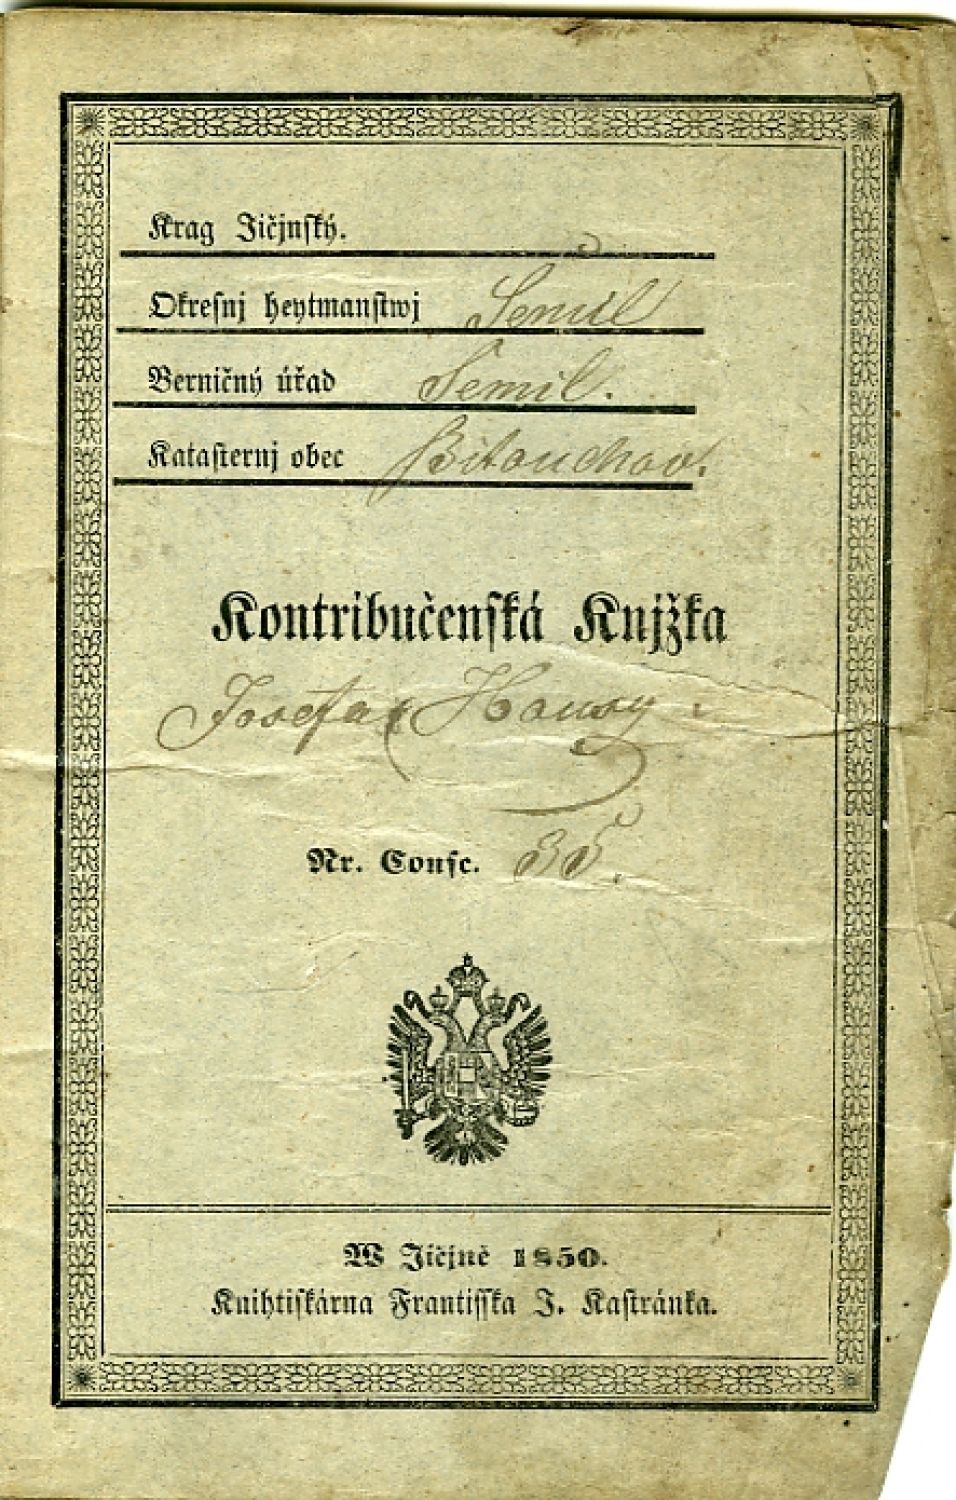 Krag Jičjnský.
Okresnj heytmanstwj Semil
Berničný úřad Semil.
Katasternj obec Bitouchov.
Kontribučenská Knjžka
Josefa Housy
Nr. Consc. 35.
W Jičjně 1850.
Knihtiskárna Frantisska J. Kastránka.